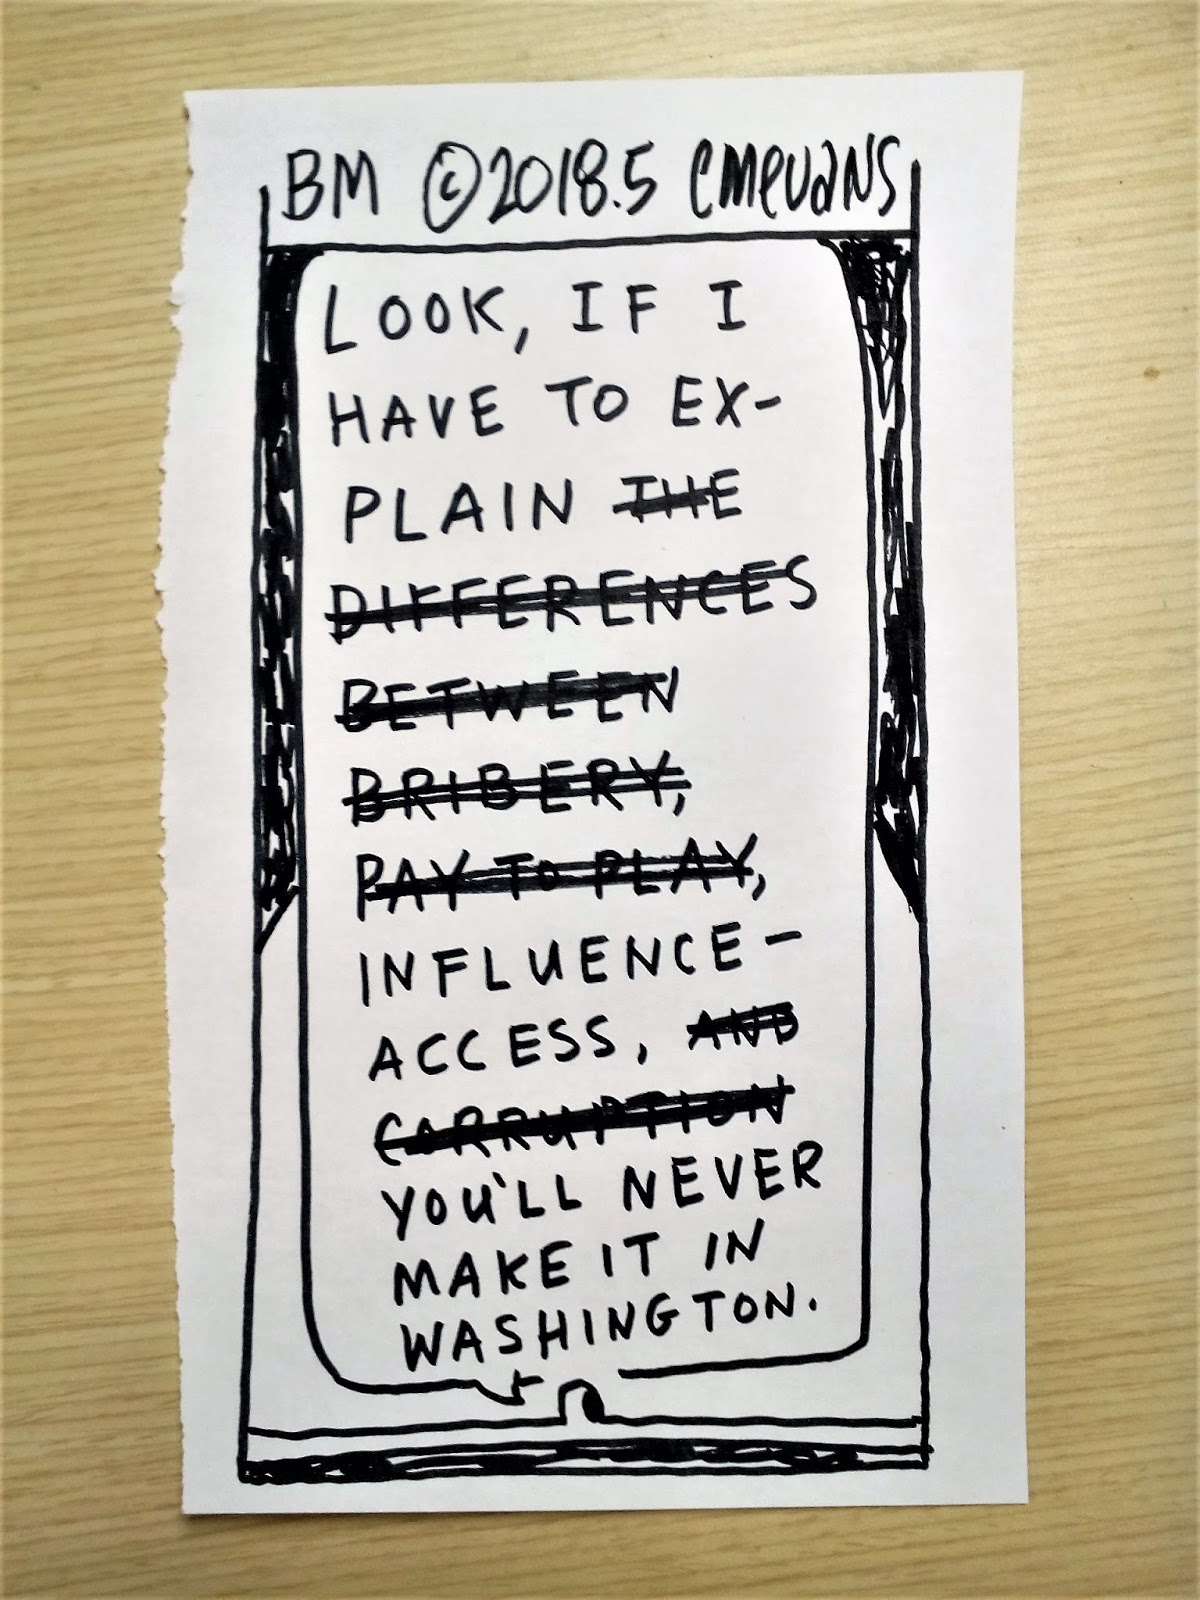 BM ©2018.5 cmevans
LOOK, IF I
HAVE TO EX-
PLAIN THE
DIFFERENCES
BETWEEN
BRIBERY,
PAY TO PLAY,
INFLUENCE-
ACCESS, AND
CORRUPTION
YOU'LL NEVER
MAKE IT IN
WASHINGTON.